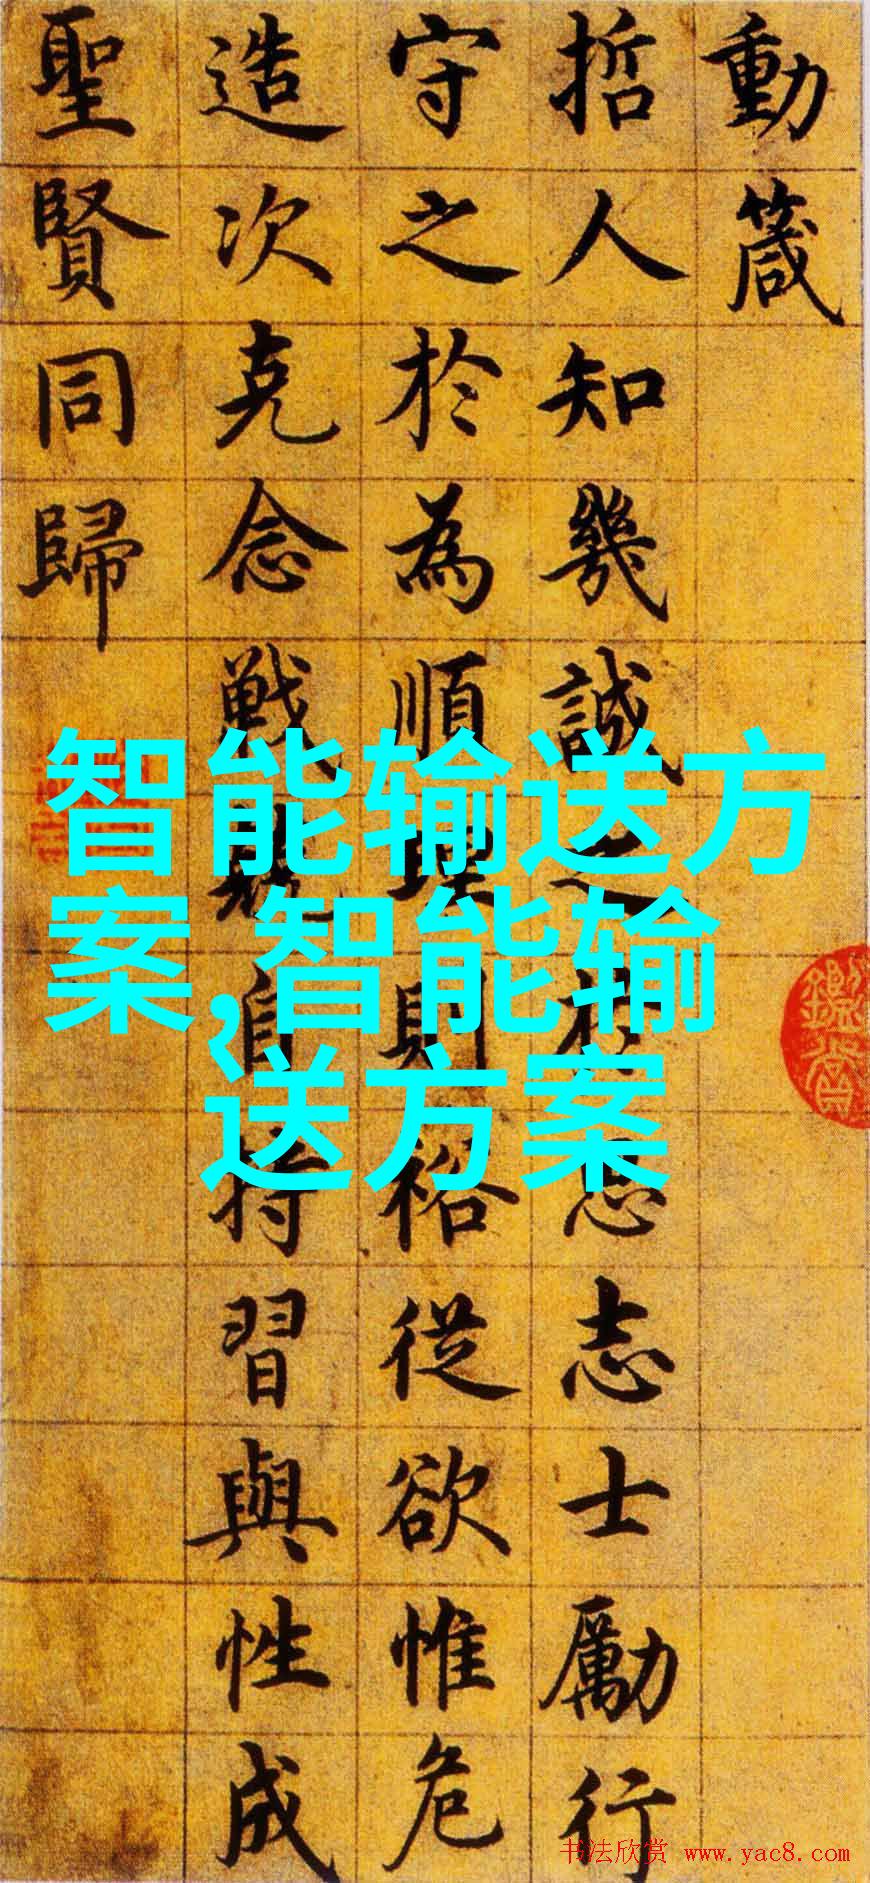 動箴
哲人知幾誠之於思志士勵行
守之於為順理則裕從欲惟危
造次克念戰兢自持習與性成
聖賢同歸
智能输送方
案,智能输
送方案
书法欣赏 www.yac8.com